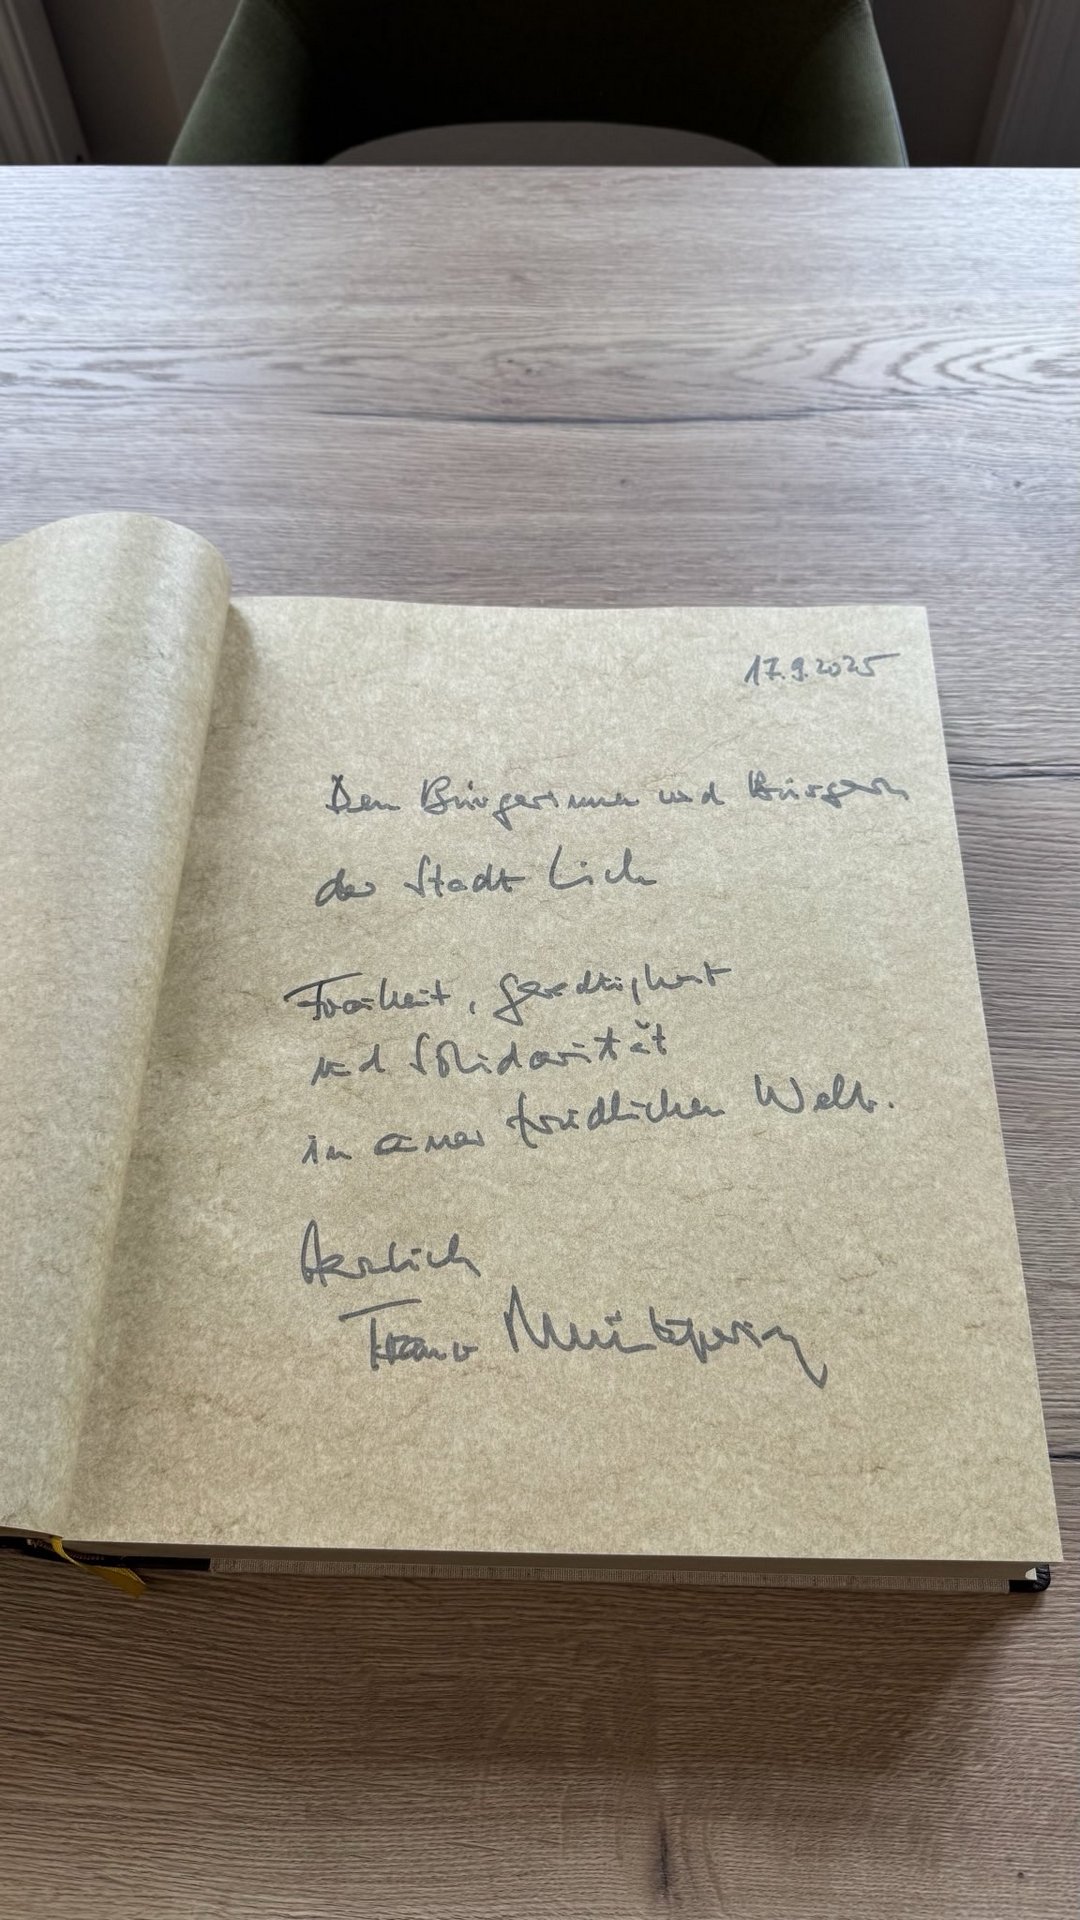 17.9.2025
Den Bürgerinnen und Bürgern
der Stadt Lich
Freiheit, Gerechtigkeit
und Solidarität
in einer friedlichen Welt.
Herzlich
Franz Müntefering